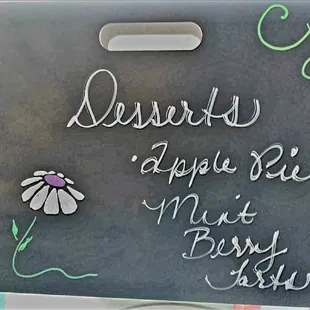 Desserts
·Apple Pie
Mint
Berry
Tarts